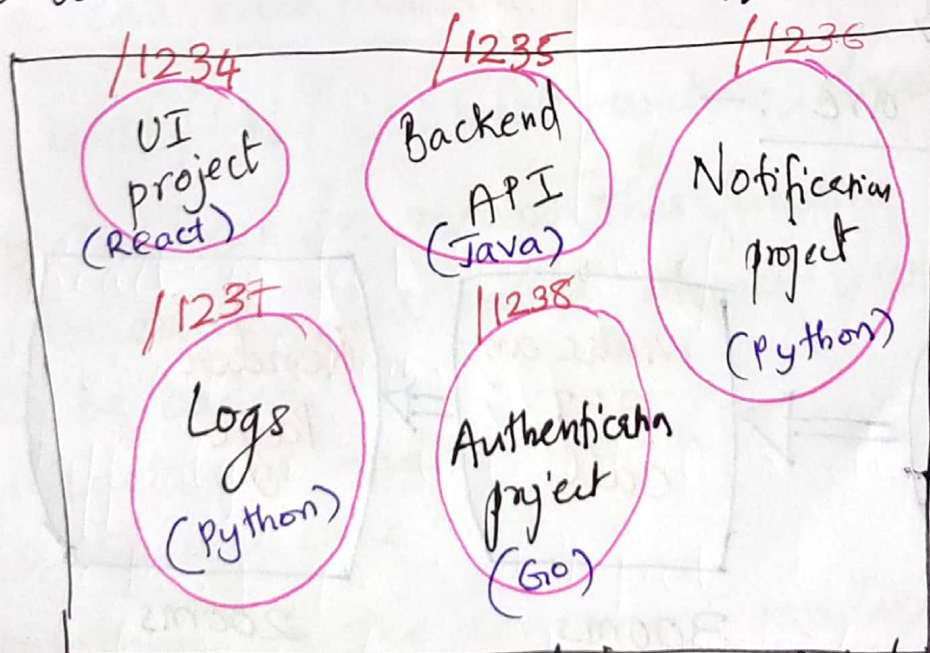 /1234
UI
project
(React)
/1235
Backend
API
(Java)
/1236
Notification
project
(Python)
/1237
Logs
(Python)
/1238
Authentication
project
(Go)